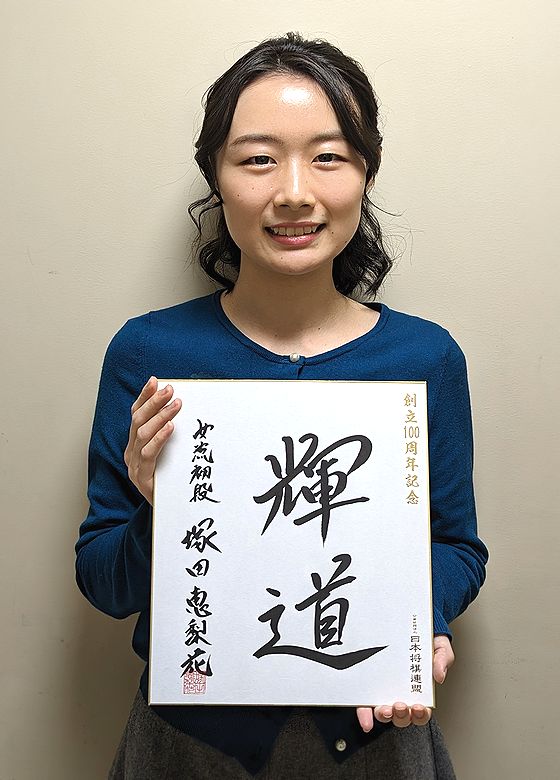 創立100周年記念
輝道
女流初段 塚田恵梨花
日本将棋連盟